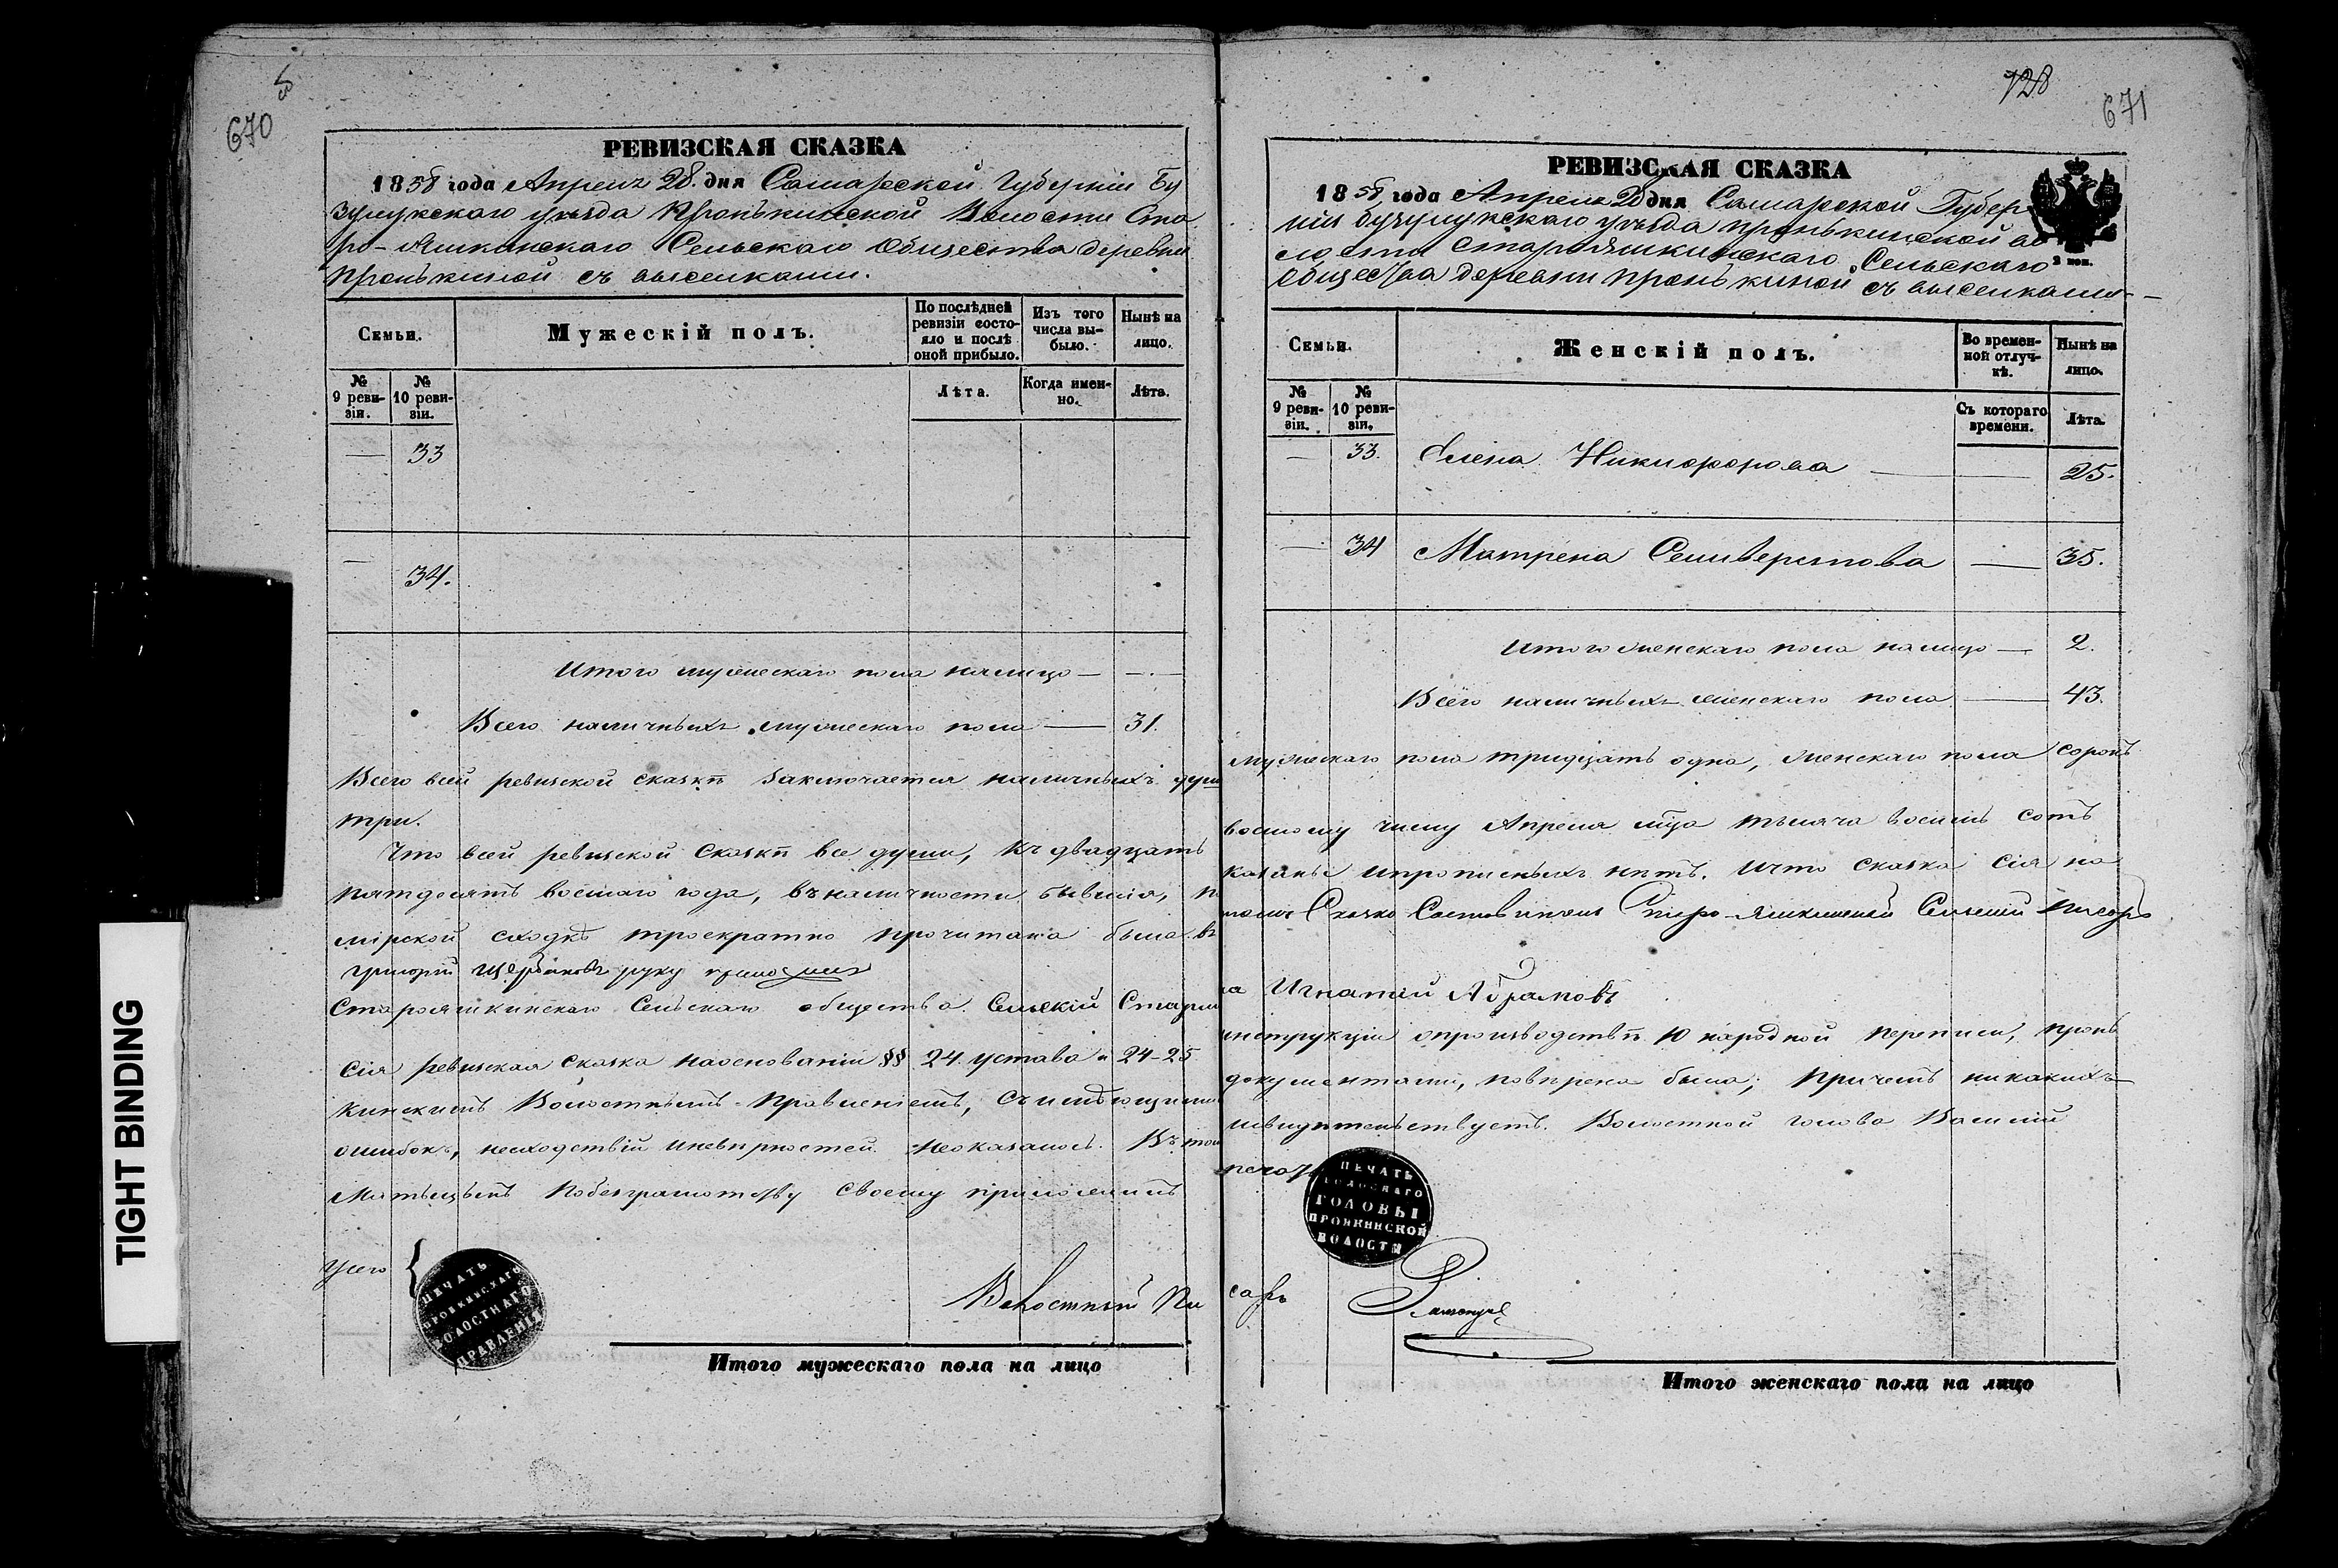 670
РЕВИЗСКАЯ СКАЗКА
1858 года Апреля 28 дня Самарской Губерніи Бу
зулукскаго уѣзда Пронькинской Волости Ста
ро-Яшкинскаго Сельскаго Общества деревни
Пронькиной съ выселками.
Семьи.
Мужескій полъ.
По послѣдней ревизіи состояло и послѣ оной прибыло.
Изъ того числа выбыло.
Нынѣ на лицо.
№ 9 ревизіи.
№ 10 ревизіи.
Лѣта.
Когда именно.
Лѣта.
— 33
— 34.
Итого мужескаго пола налицо — —
Всего наличныхъ мужескаго пола — 31.
Всего всей ревизской сказкѣ заключается наличныхъ душъ
три.
Что всей ревизской сказкѣ все души, къ двадцать
пятдесятъ восмаго года, въ наличности бывшія,
мірской сходкѣ троекратно прочитана была въ
Григорій Щербаковъ руку приложилъ
Старояшкинскаго Сельскаго общества Сельскій Старши
Сія ревизская сказка наоснованіи §§ 24 устава и 24-25
кинскимъ Волостнымъ Правленіемъ, съ имѣющими
ошибокъ, несходствій иневѣрностей неоказалось. Въ том
побезграмотству своему приложилъ
усего {
ПЕЧАТЬ
ПРОНКИНСКАГО
ВОЛОСТНАГО
ПРАВЛЕНІЯ
Волостный Пи
Итого мужескаго пола на лицо
728
671
РЕВИЗСКАЯ СКАЗКА
1858 года Апреля 28 дня Самарской Губер
ніи Бузулукскаго уѣзда Пронькинской во
лости Старояшкинскаго Сельскаго
Общества деревни Пронькиной съ выселками
3 коп.
Семьи.
Женскій полъ.
Во временной отлучкѣ.
Нынѣ на лицо.
№ 9 ревизіи.
№ 10 ревизіи.
Съ котораго времени.
Лѣта.
— 33. Елена Никифорова — 25.
— 34 Матрена Селиверстова — 35.
Итого женскаго пола налицо — 2.
Всего наличныхъ женскаго пола — 43.
мужескаго пола тридцать одна, женскаго пола сорокъ
восмому числу Апреля мца тысяча восемь сотъ
казаны ипрописныхъ нѣтъ. Ичто сказка сія на
Сказку Составилъ Старо-Яшкинскій Сельскій Писарь
на Игнатій Абрамовъ
инструкціи опроизводствѣ 10 народной переписи, Пронь
документами, повѣрена была; Причемъ никакихъ
исвидѣтельствуетъ. Волостной голова Василій
печать
ПЕЧАТЬ
ВОЛОСНАГО
ГОЛОВЫ
ПРОНКИНСКОЙ
ВОЛОСТИ
сарь
Итого женскаго пола на лицо
TIGHT BINDING